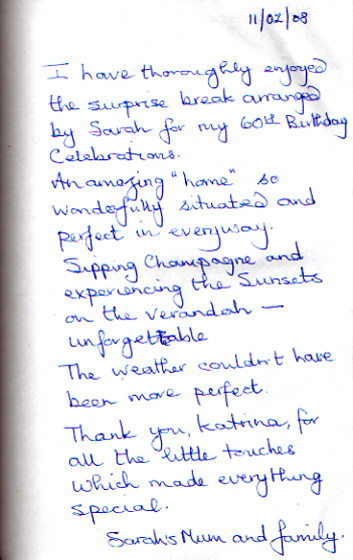 11/02/08
I have thoroughly enjoyed
the surprise break arranged
by Sarah for my 60th Birthday
Celebrations.
An amazing "home" so
wonderfully situated and
perfect in everyway.
Sipping Champagne and
experiencing the Sunsets
on the verandah —
unforgettable
The weather couldn't have
been more perfect.
Thank you, Katrina, for
all the little touches
which made everything
special.
Sarah's Mum and family.